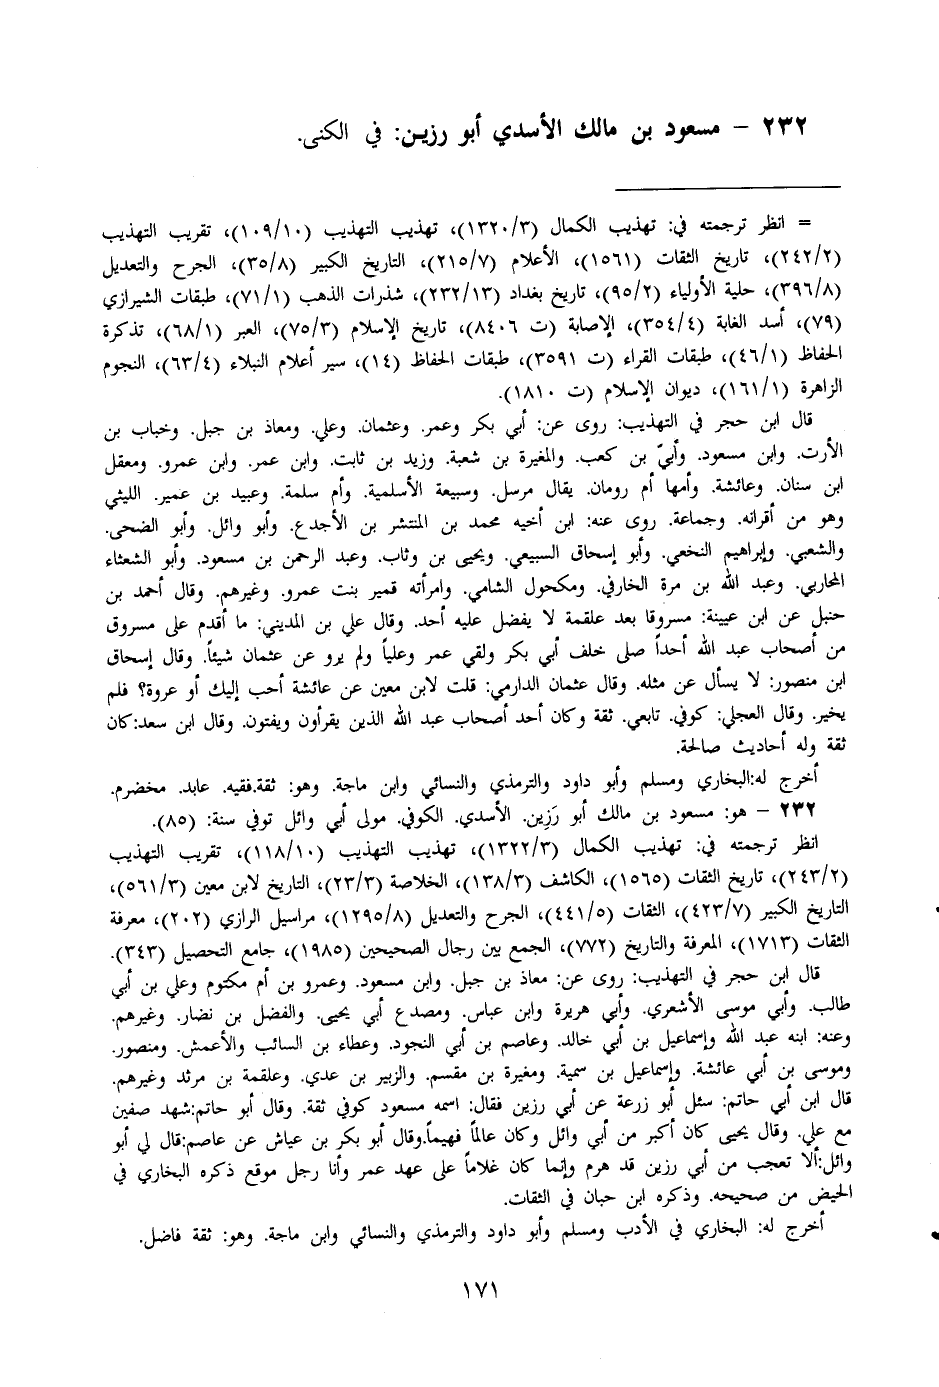 ٢٣٢ – مسعود بن مالك الأسدي أبو رزين: في الكنى.
= انظر ترجمته في: تهذيب الكمال (١٣٢٠/٣)، تهذيب التهذيب (١٠٩/١٠)، تقريب التهذيب
(٢٤٢/٢)، تاريخ الثقات (١٥٦١)، الأعلام (٢١٥/٧)، التاريخ الكبير (٣٥/٨)، الجرح والتعديل
(٣٩٦/٨)، حلية الأولياء (٩٥/٢)، تاريخ بغداد (٢٣٢/١٣)، شذرات الذهب (٧١/١)، طبقات الشيرازي
(٧٩)، أسد الغابة (٣٥٤/٤)، الإصابة (ت ٨٤٠٦)، تاريخ الإسلام (٧٥/٣)، العبر (٦٨/١)، تذكرة
الحفاظ (٤٦/١)، طبقات القراء (ت ٣٥٩١)، طبقات الحفاظ (١٤)، سير أعلام النبلاء (٦٣/٤)، النجوم
الزاهرة (١٦١/١)، ديوان الإسلام (ت ١٨١٠).
قال ابن حجر في التهذيب: روى عن: أبي بكر وعمر. وعثمان. وعلي. ومعاذ بن جبل. وخباب بن
الأرت. وابن مسعود. وأبيّ بن كعب. والمغيرة بن شعبة. وزيد بن ثابت. وابن عمر. وابن عمرو. ومعقل
ابن سنان. وعائشة. وأمها أم رومان. يقال مرسل. وسبيعة الأسلمية. وأم سلمة. وعبيد بن عمير. الليثي
وهو من أقرانه. وجماعة. روى عنه: ابن أخيه محمد بن المنتشر بن الأجدع. وأبو وائل. وأبو الضحى.
والشعبي. وإبراهيم النخعي. وأبو إسحاق السبيعي. ويحيى بن وثاب. وعبد الرحمن بن مسعود. وأبو الشعثاء
المحاربي. وعبد الله بن مرة الخارفي. ومكحول الشامي. وامرأته قمير بنت عمرو. وغيرهم. وقال أحمد بن
حنبل عن ابن عيينة: مسروقا بعد علقمة لا يفضل عليه أحد. وقال علي بن المديني: ما أقدم على مسروق
من أصحاب عبد الله أحداً صلى خلف أبي بكر ولقي عمر وعلياً ولم يرو عن عثمان شيئاً. وقال إسحاق
ابن منصور: لا يسأل عن مثله. وقال عثمان الدارمي: قلت لابن معين عن عائشة أحب إليك أو عروة؟ فلم
يخير. وقال العجلي: كوفي. تابعي. ثقة وكان أحد أصحاب عبد الله الذين يقرأون ويفتون. وقال ابن سعد:كان
ثقة وله أحاديث صالحة.
أخرج له:البخاري ومسلم وأبو داود والترمذي والنسائي وابن ماجة. وهو: ثقة.فقيه. عابد. مخضرم.
٢٣٢ – هو: مسعود بن مالك أبو رَزِين. الأسدي. الكوفي. مولى أبي وائل توفي سنة: (٨٥).
انظر ترجمته في: تهذيب الكمال (١٣٢٢/٣)، تهذيب التهذيب (١١٨/١٠)، تقريب التهذيب
(٢٤٣/٢)، تاريخ الثقات (١٥٦٥)، الكاشف (١٣٨/٣)، الخلاصة (٢٣/٣)، التاريخ لابن معين (٥٦١/٣)،
التاريخ الكبير (٤٢٣/٧)، الثقات (٤٤١/٥)، الجرح والتعديل (١٢٩٥/٨)، مراسيل الرازي (٢٠٢)، معرفة
الثقات (١٧١٣)، المعرفة والتاريخ (٧٧٢)، الجمع بين رجال الصحيحين (١٩٨٥)، جامع التحصيل (٣٤٣).
قال ابن حجر في التهذيب: روى عن: معاذ بن جبل. وابن مسعود. وعمرو بن أم مكتوم وعلي بن أبي
طالب. وأبي موسى الأشعري. وأبي هريرة وابن عباس. ومصدع أبي يحيى. والفضل بن نضار. وغيرهم.
وعنه: ابنه عبد الله وإسماعيل بن أبي خالد. وعاصم بن أبي النجود. وعطاء بن السائب والأعمش. ومنصور.
وموسى بن أبي عائشة. وإسماعيل بن سمية. ومغيرة بن مقسم. والزبير بن عدي. وعلقمة بن مرثد وغيرهم.
قال ابن أبي حاتم: سئل أبو زرعة عن أبي رزين فقال: اسمه مسعود كوفي ثقة. وقال أبو حاتم:شهد صفين
مع علي. وقال يحيى كان أكبر من أبي وائل وكان عالماً فهيماً.وقال أبو بكر بن عياش عن عاصم:قال لي أبو
وائل:ألا تعجب من أبي رزين قد هرم وإنما كان غلاماً على عهد عمر وأنا رجل موقع ذكره البخاري في
الحيض من صحيحه. وذكره ابن حبان في الثقات.
أخرج له: البخاري في الأدب ومسلم وأبو داود والترمذي والنسائي وابن ماجة. وهو: ثقة فاضل.
١٧١